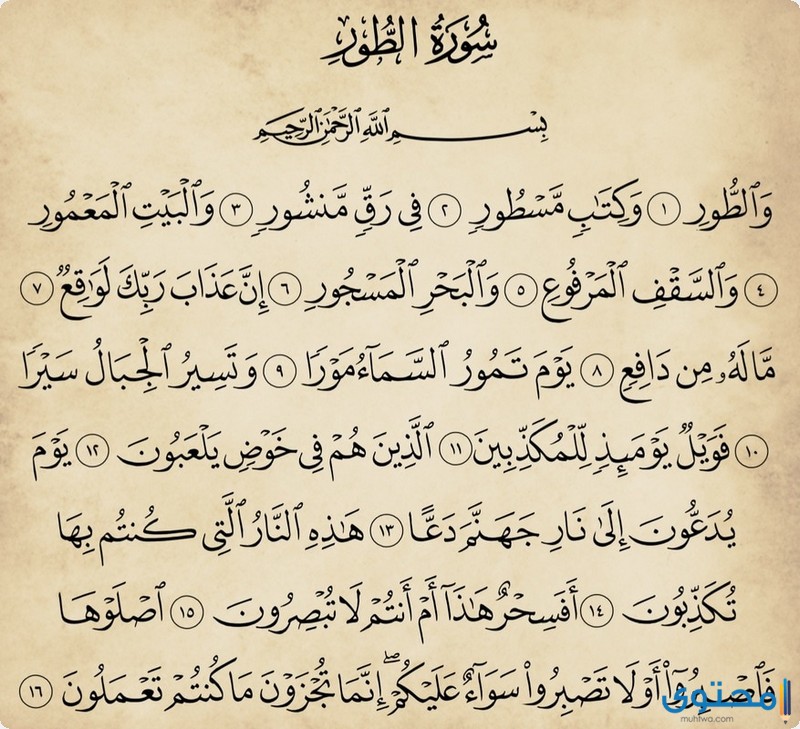 سُورَةُ الطُّورِ
بِسْمِ اللَّهِ الرَّحْمَٰنِ الرَّحِيمِ
وَٱلطُّورِ ١ وَكِتَٰبٖ مَّسۡطُورٖ ٢ فِي رَقّٖ مَّنشُورٖ ٣ وَٱلۡبَيۡتِ ٱلۡمَعۡمُورِ
٤ وَٱلسَّقۡفِ ٱلۡمَرۡفُوعِ ٥ وَٱلۡبَحۡرِ ٱلۡمَسۡجُورِ ٦ إِنَّ عَذَابَ رَبِّكَ لَوَٰقِعٞ ٧
مَّا لَهُۥ مِن دَافِعٖ ٨ يَوۡمَ تَمُورُ ٱلسَّمَآءُ مَوۡرٗا ٩ وَتَسِيرُ ٱلۡجِبَالُ سَيۡرٗا
١٠ فَوَيۡلٞ يَوۡمَئِذٖ لِّلۡمُكَذِّبِينَ ١١ ٱلَّذِينَ هُمۡ فِي خَوۡضٖ يَلۡعَبُونَ ١٢ يَوۡمَ
يُدَعُّونَ إِلَىٰ نَارِ جَهَنَّمَ دَعًّا ١٣ هَٰذِهِ ٱلنَّارُ ٱلَّتِي كُنتُم بِهَا
تُكَذِّبُونَ ١٤ أَفَسِحۡرٌ هَٰذَآ أَمۡ أَنتُمۡ لَا تُبۡصِرُونَ ١٥ ٱصۡلَوۡهَا
فَٱصۡبِرُوٓاْ أَوۡ لَا تَصۡبِرُواْ سَوَآءٌ عَلَيۡكُمۡۖ إِنَّمَا تُجۡزَوۡنَ مَا كُنتُمۡ تَعۡمَلُونَ ١٦
محتوى
muhtwa.com